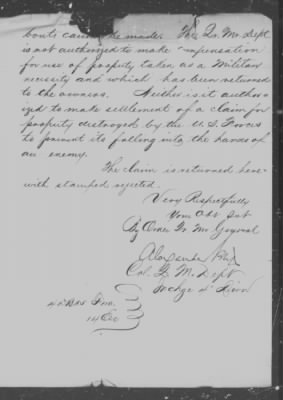 bouts cannot be made. The Qr. Mr. Dept
is not authorized to make compensation
for use of property taken as a Military
necessity and which has been returned
to the owners. Neither is it author
ized to make settlement of a claim for
property destroyed by the U.S. Forces
to prevent its falling into the hands of
an enemy.
The claim is returned here-
with stamped rejected.
Very Respectfully
Your Obt Svt
By Order Qr. Mr. General
Alexander
Col. Q. M. Dept
in chge 4" Divn